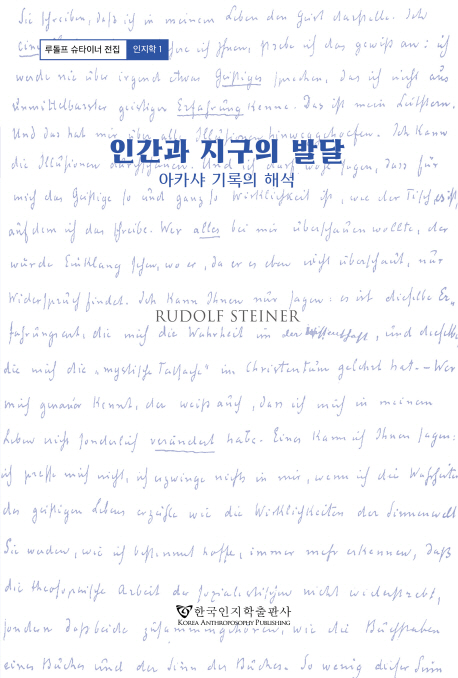 Sie schreiben, daß ich in meinem Leben den Geist darstelle. Ich
루돌프 슈타이너 전집 인지학 1
werde nie über irgend etwas Geistiges sprechen, das ich nicht aus
unmittelbarster geistiger Erfahrung kenne. Das ist mein Leitstern.
Und das hat mir über alle Illusionen hinweggeholfen. Ich kann
인간과 지구의 발달
die Illusionen durchschauen. Und ich darf wohl sagen, dass für
아카샤 기록의 해석
mich das Geistige so und ganz so Wirklichkeit ist, wie der Tisch es ist,
auf dem ich das schreibe. Wer alles bei mir überschauen wollte, der
würde Einklang sehen, wo er, da er es eben nicht überschaut, nur
Widerspruch findet. Ich kann Ihnen nur sagen: es ist dieselbe Er-
RUDOLF STEINER
fahrungsart, die mich die Wahrheit in der Wissenschaft, und dieselbe
die mich die „mystische Tatsache" im Christentum gelehrt hat. – Wer
mich genauer kennt, der weiß auch, dass ich mich in meinem
Leben nicht sonderlich verändert habe. Eines kann ich Ihnen sagen:
ich presse mich nicht, ich erzwinge nichts in mir, wenn ich die Wahrheiten
des geistigen Lebens erzähle wie die Wirklichkeiten der Sinnenwelt
Sie werden, wie ich bestimmt hoffe, immer mehr erkennen, daß
die theosophische Arbeit der sozialistischen nicht widerstrebt,
한국인지학출판사
KOREA ANTHROPOSOPHY PUBLISHING
sondern daß beide zusammengehören, wie die Buchstaben
eines Buches und der Sinn des Buches. So wenig dieser Sinn